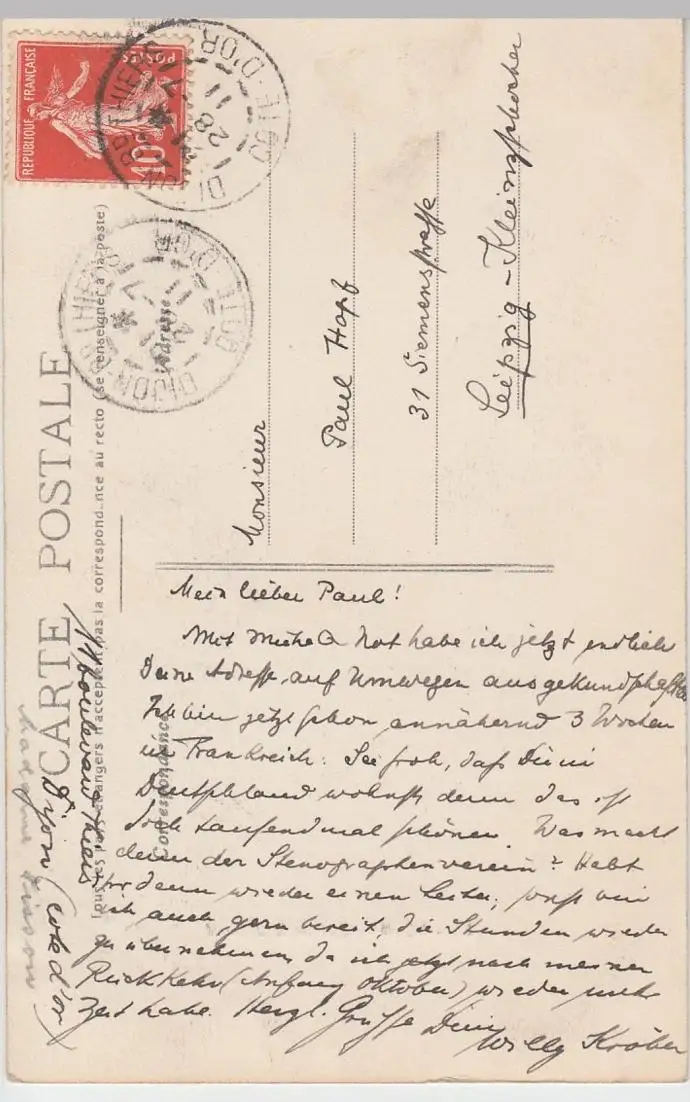 CARTE POSTALE
Tous les pays étrangers n'acceptent pas la correspondance au recto (se renseigner à la poste)
Correspondance
Adresse
REPUBLIQUE FRANÇAISE
POSTES
10
DIJON
COTE-D'OR
28
11
DIJON
COTE-D'OR
11
Monsieur
Paul Hopf
31 Siemensstrasse
Leipzig - Kleinzschocher
Mein lieber Paul!
Mit Mühe & Not habe ich jetzt endlich
Deine Adresse auf Umwegen ausgekundschaftet.
Ich bin jetzt schon annähernd 3 Wochen
in Frankreich. Sei froh, daß Du in
Deutschland wohnst denn das ist
doch tausendmal schöner. Was macht
denn der Stenographenverein? Habt
Ihr denn wieder einen Leiter, sonst bin
ich auch gern bereit, die Stunden wieder
zu übernehmen, da ich jetzt nach meiner
Rückkehr (Anfang Oktober) wieder mehr
Zeit habe. Herzl. Grüsse Dein
Willy Kröber
boulevard Thiers
Dijon (côte d'or)
Madame